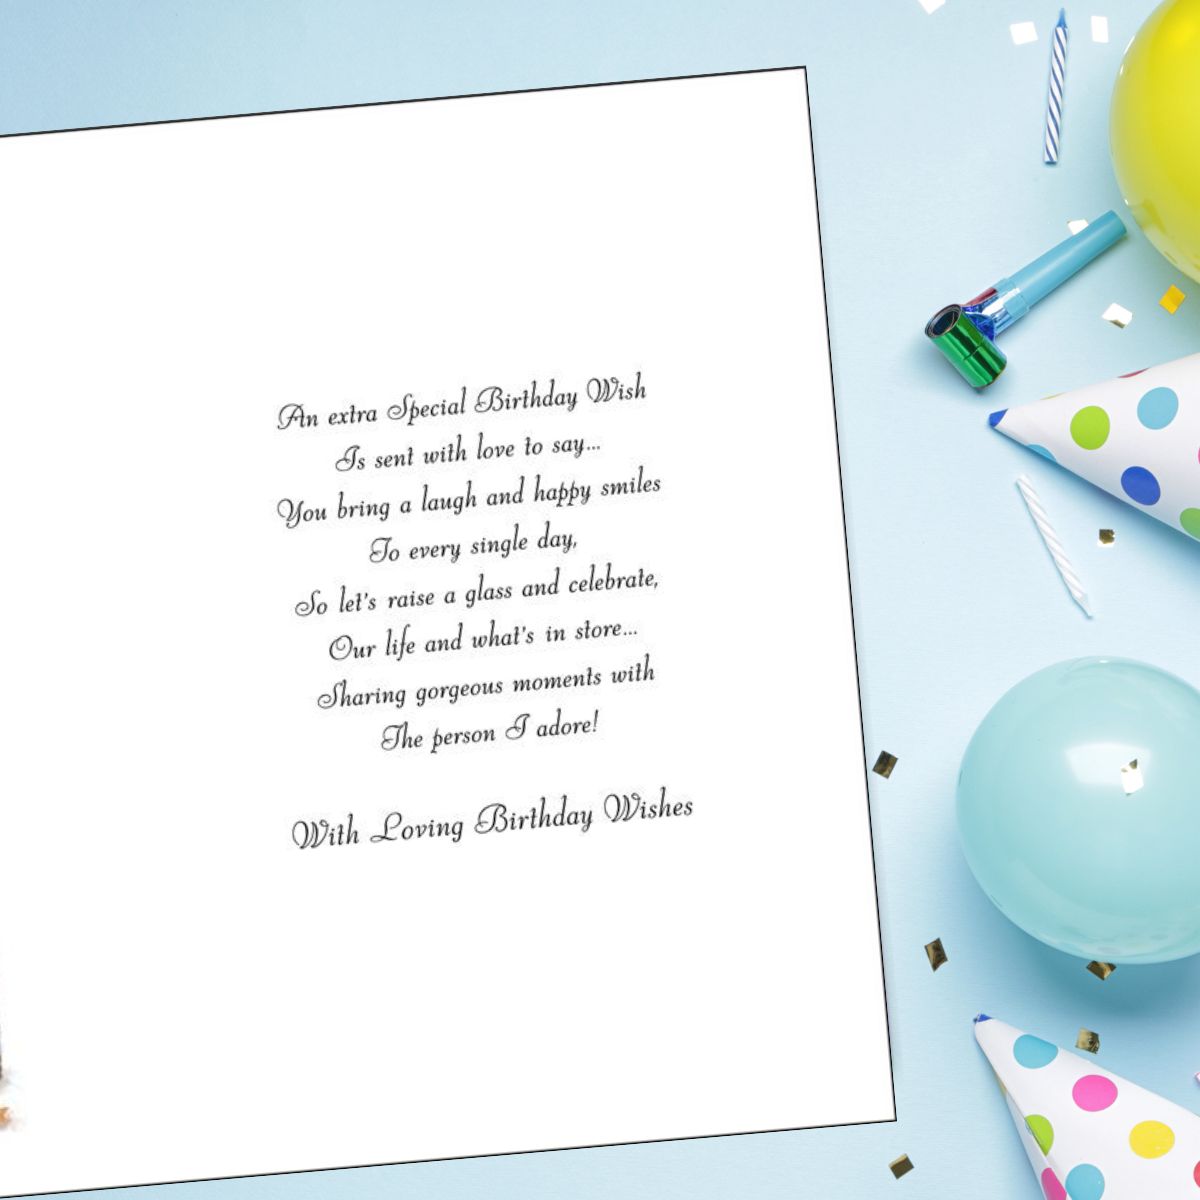 An extra Special Birthday Wish
Is sent with love to say...
You bring a laugh and happy smiles
To every single day,
So let's raise a glass and celebrate,
Our life and what's in store...
Sharing gorgeous moments with
The person I adore!
With Loving Birthday Wishes